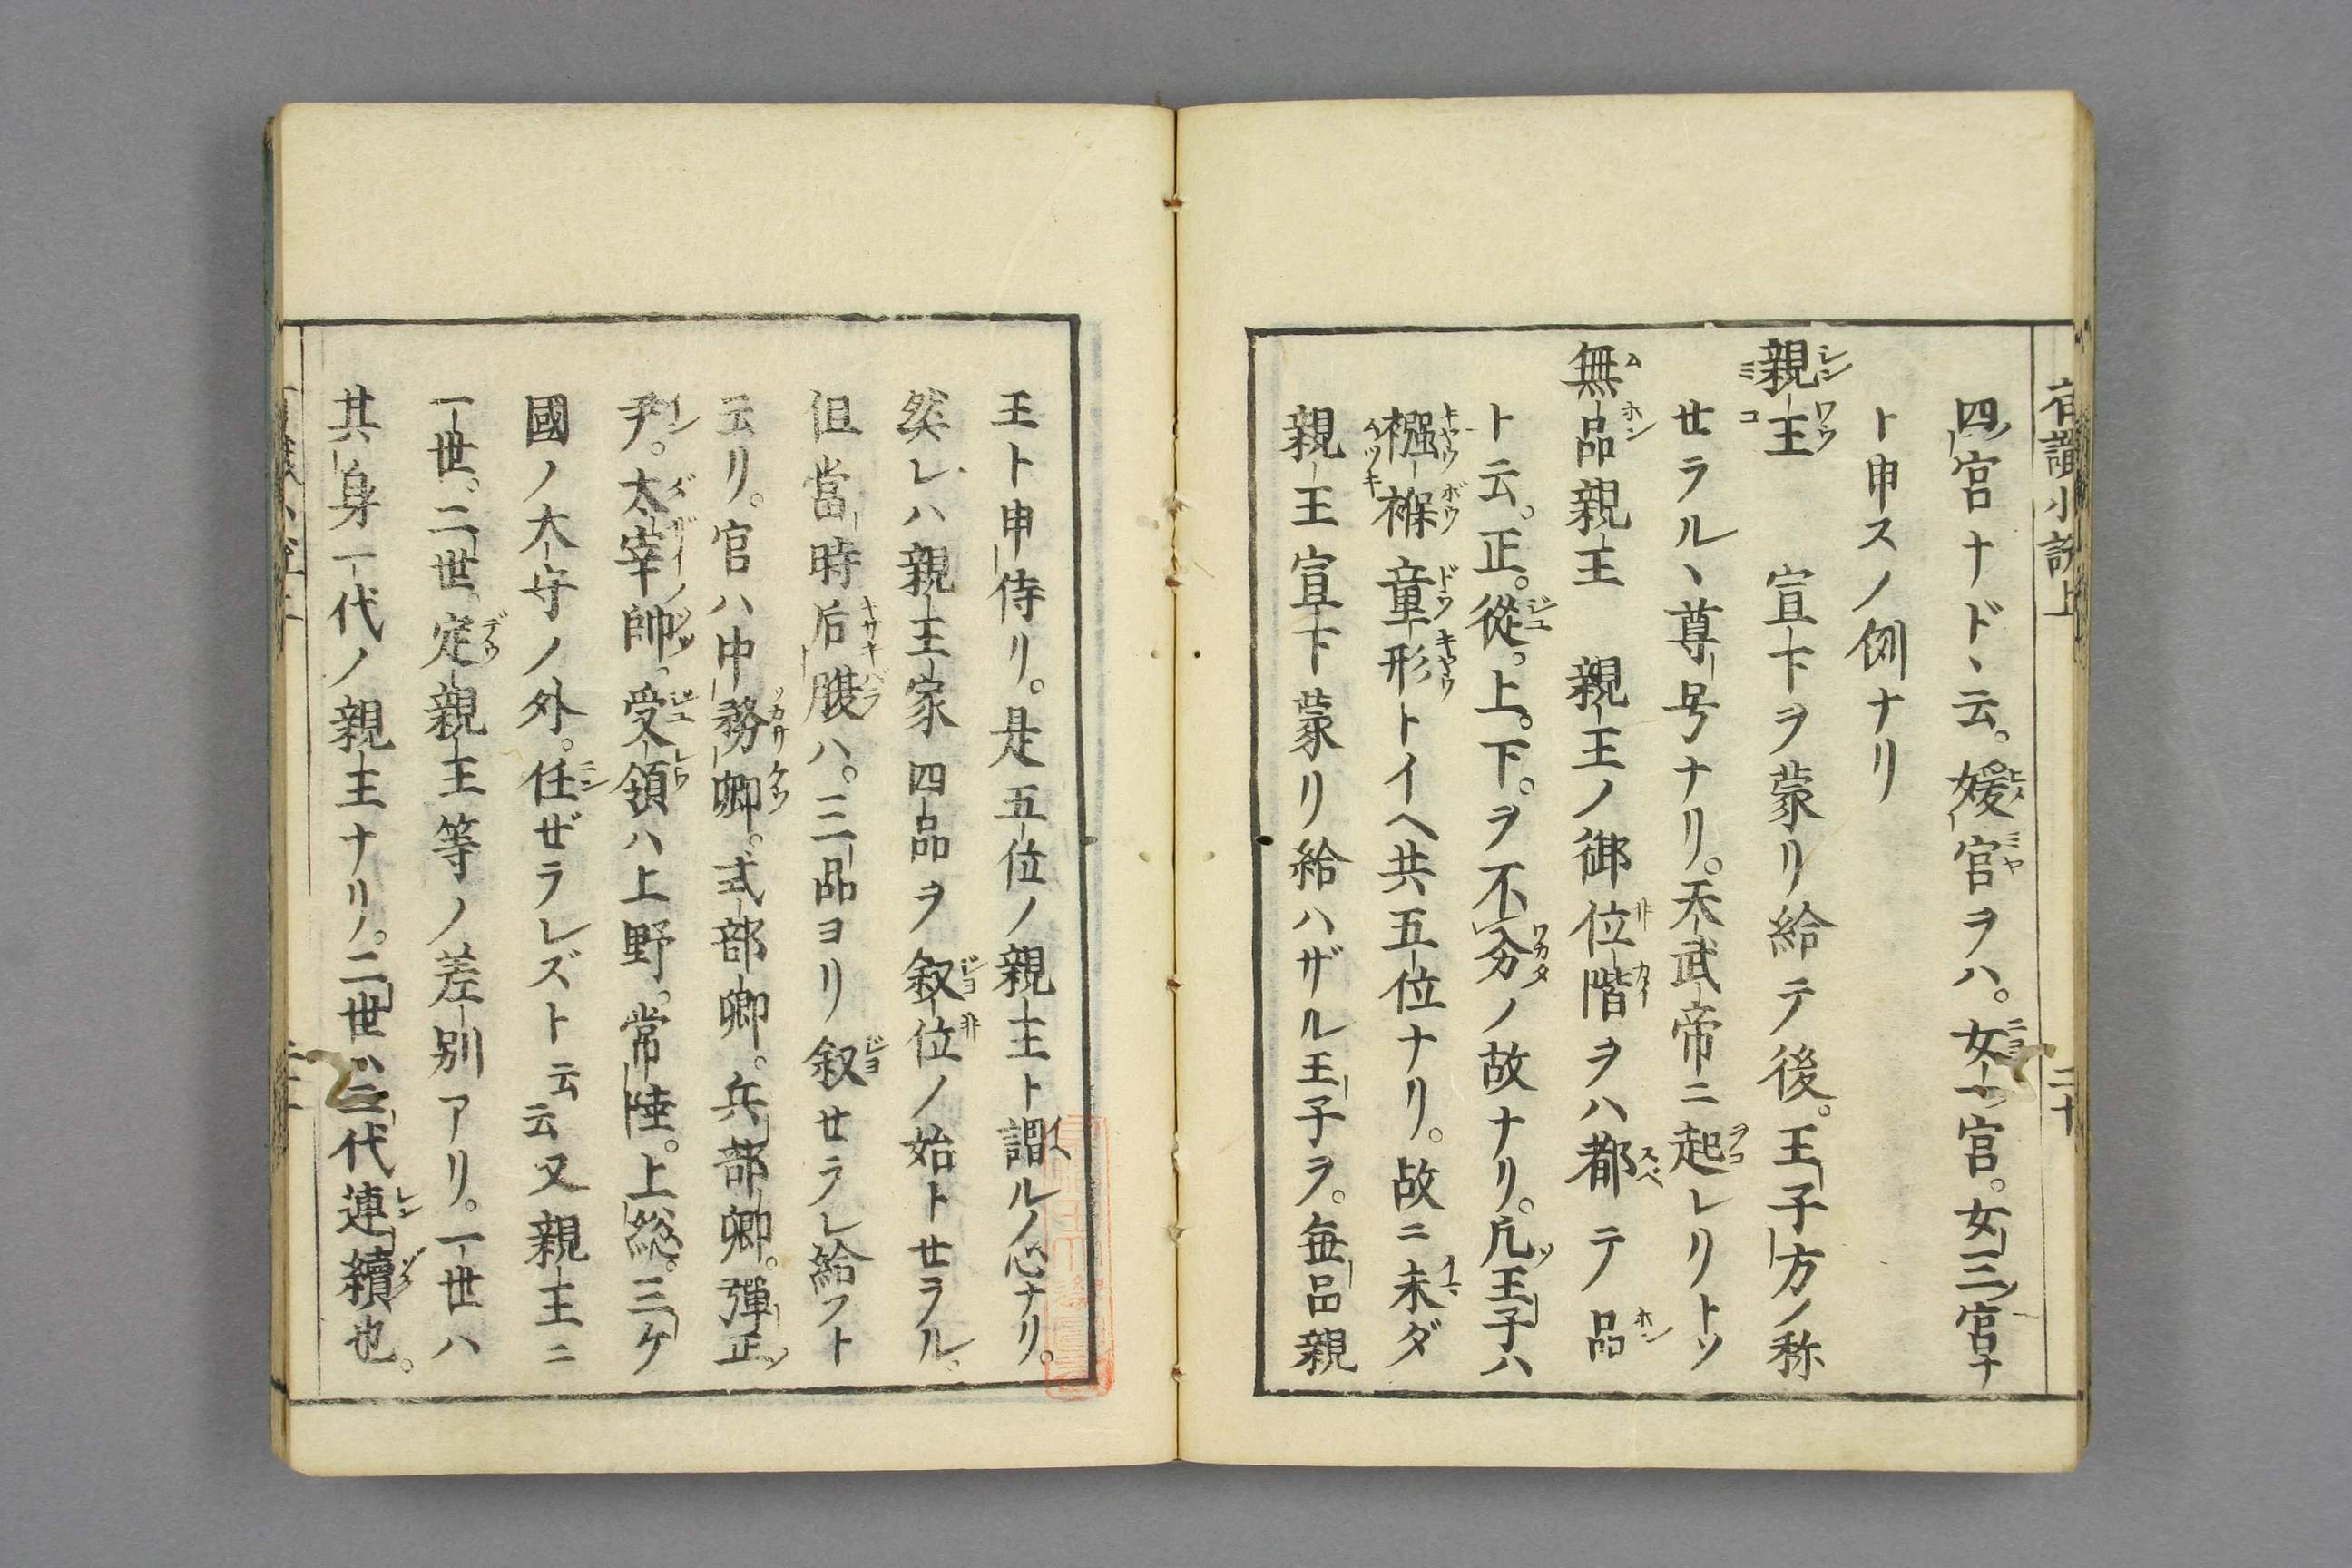 有識小説上
二十
四ノ宮ナドヽ云。媛宮ヲハ。女一宮。女三ノ宮ナ
ト申スノ例ナリ
親王　宣下ヲ蒙リ給テ後。王子方ノ称
せラルヽ尊号ナリ。天武帝ニ起レリトソ
無品親王　親王ノ御位階ヲハ都テ品
ト云。正。從。上。下。ヲ不分ノ故ナリ。凡王子ハ
襁褓童形トイヘ共五位ナリ。故ニ未ダ
親王宣下蒙リ給ハザル王子ヲ。毎品親
王ト申侍リ。是五位ノ親王ト謂ルノ心ナリ。
然レハ親王家四品ヲ叙位ノ始トせラル。
但當時后腹ハ。三品ヨリ叙せラレ給フト
云リ。官ハ中務卿。式部卿。兵部卿。彈正ノ
尹。太宰帥。受領ハ上野。常陸。上総。三ケ
國ノ大守ノ外。任ぜラレズト云云又親王ニ
一世。二世。定親王等ノ差別アリ。一世ハ
其身一代ノ親王ナリ。二世ハ二代連續也。